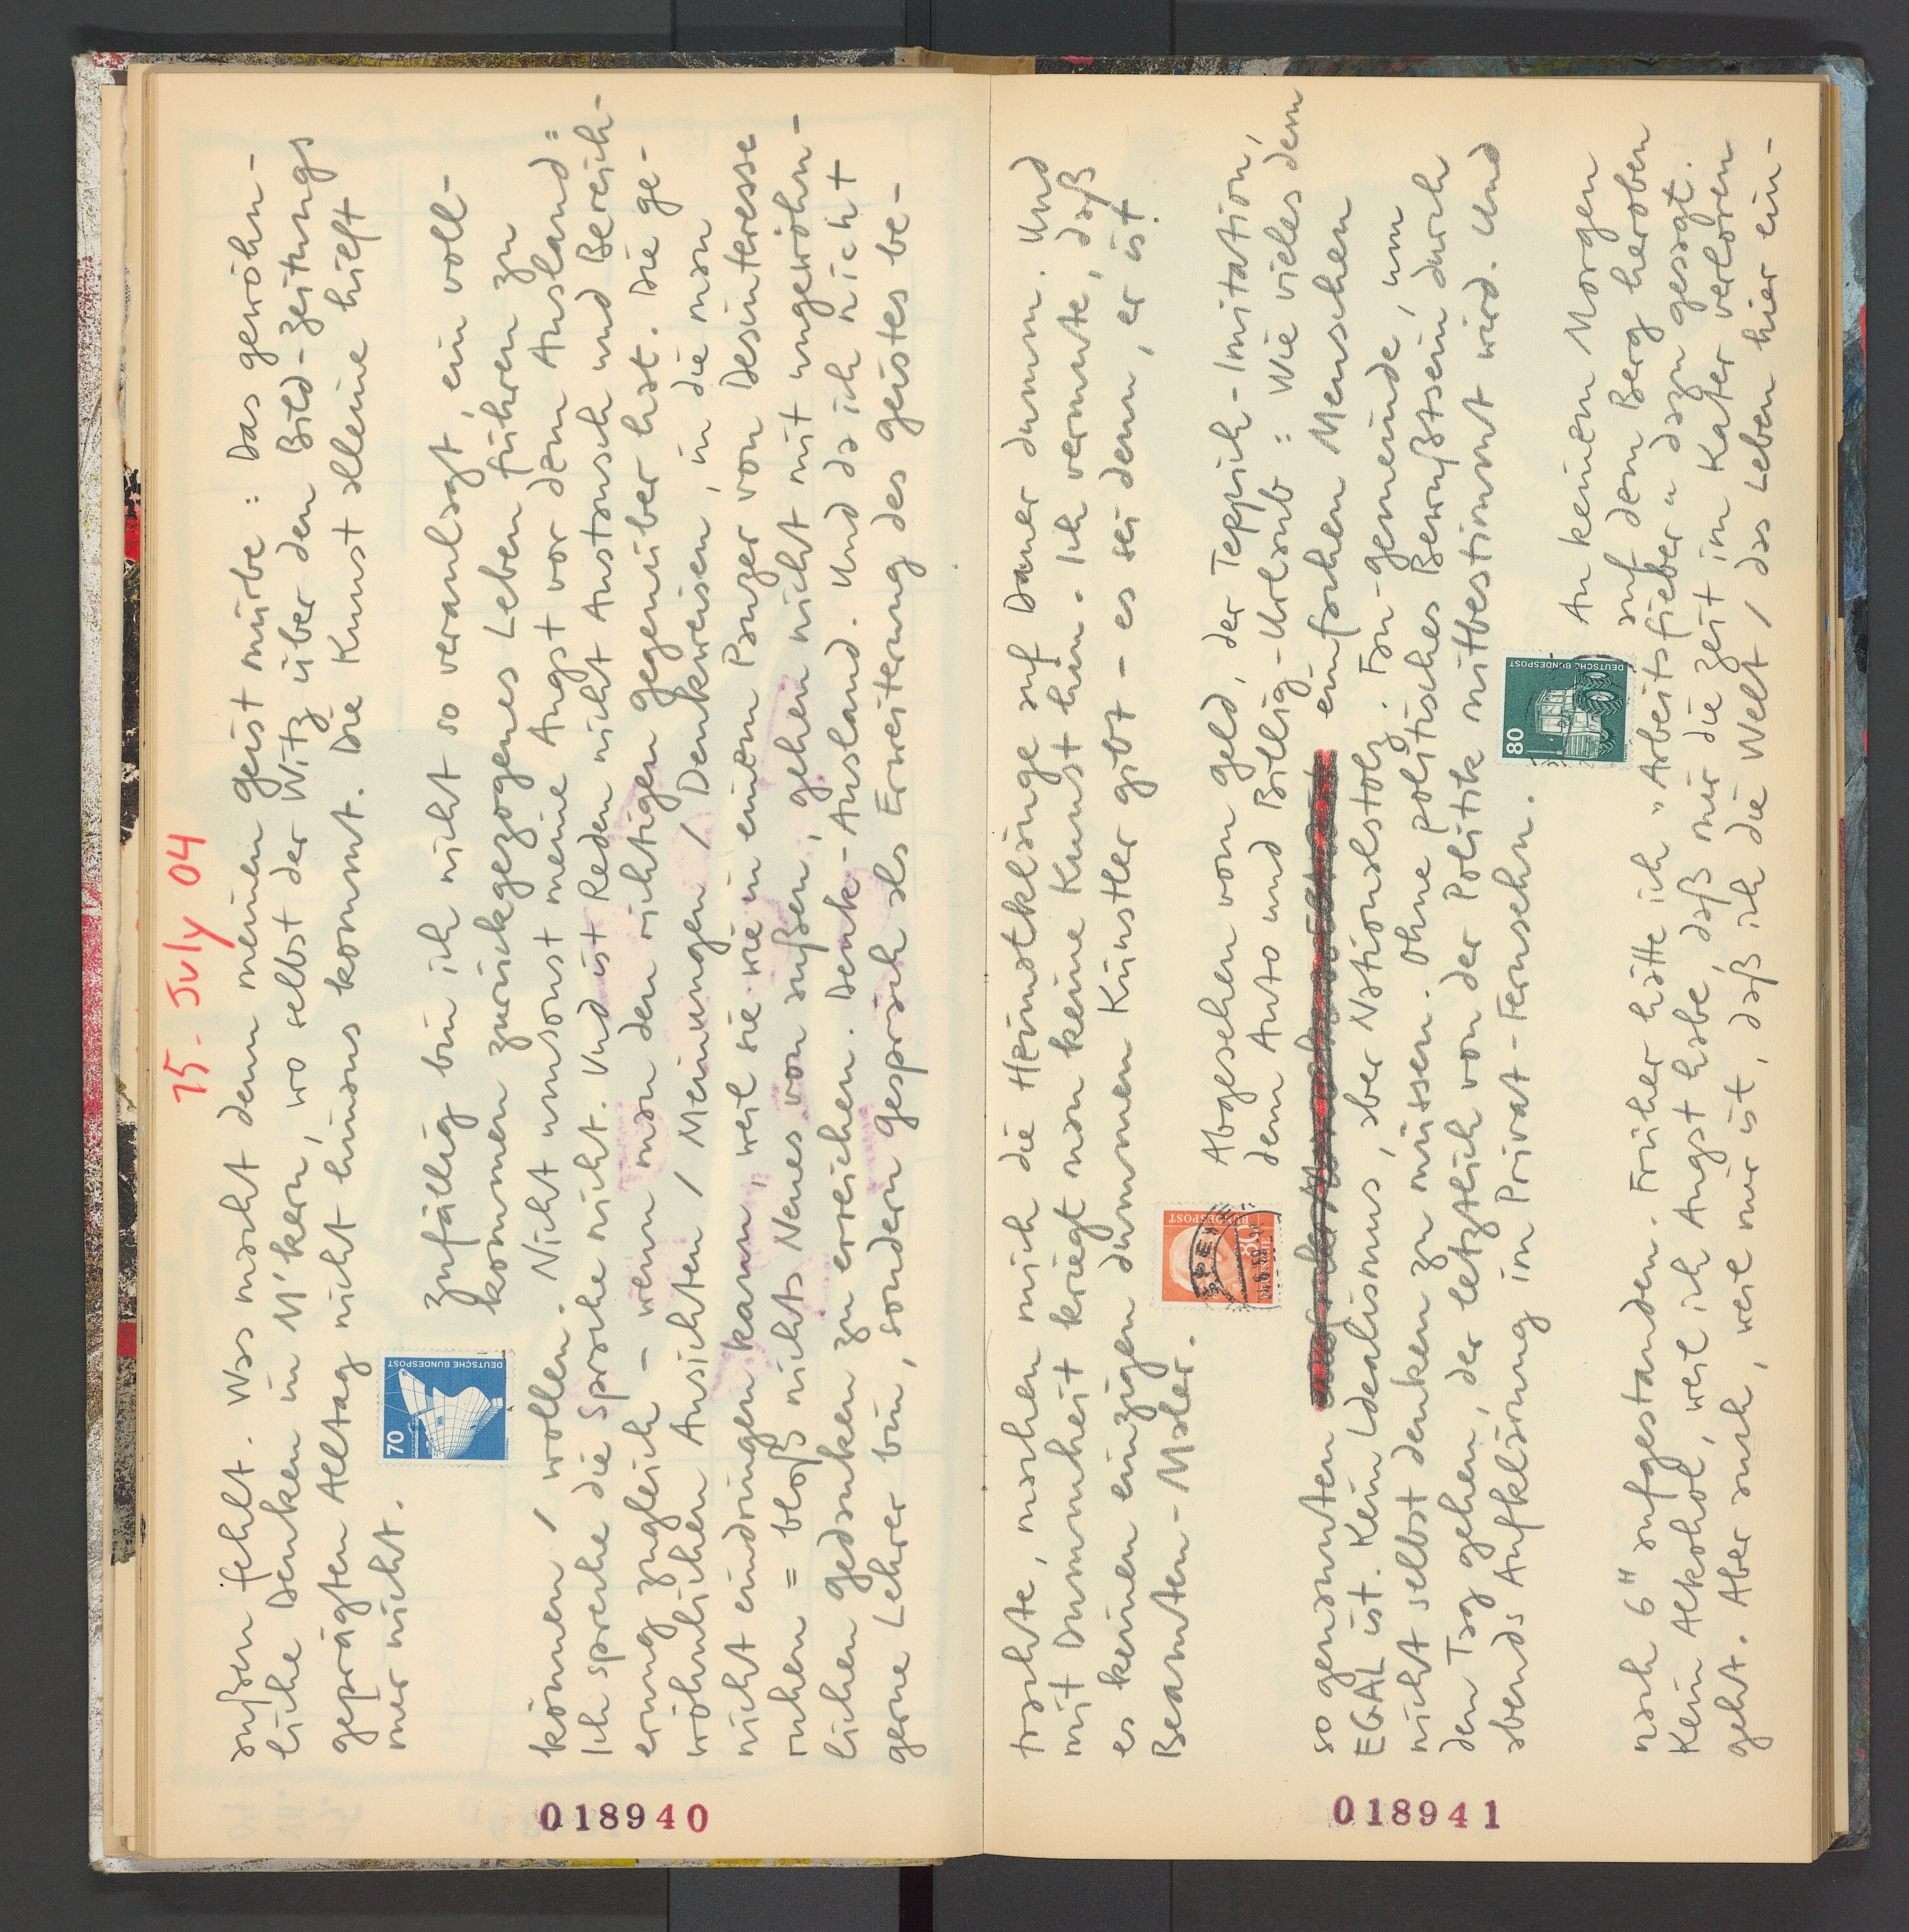 15. July 04
außen fehlt. Was macht denn meinen Geist mürbe: Das gewöhn-
liche Denken in M'kern, wo selbst der Witz über den Bild-Zeitungs
geprägten Alltag nicht hinaus kommt. Die Kunst alleine hilft
mer nicht.
70
DEUTSCHE BUNDESPOST
Zufällig bin ich nicht so veranlagt, ein voll-
kommen zurückgezogenes Leben führen zu
können / wollen. Nicht umsonst meine Angst vor dem Ausland =
Ich spreche die Sprache nicht. Und ist Reden nicht Austausch und Bereich-
erung zugleich - wenn man den richtigen Gegenüber hat. Die ge-
wöhnlichen Ansichten / Meinungen / Denkweisen, in die man
nicht eindringen kann, weil sie wie in einem Panzer von Desinteresse
ruhen = bloß nichts Neues von außen, gehen nicht mit ungewöhn-
lichen Gedanken zu erreichen. Denk-Ausland. Und da ich nicht
gerne Lehrer bin, sondern Gespräch als Erweiterung des Geistes be-
018940
trachte, machen mich die Heimatklänge auf Dauer dumm. Und
mit Dummheit kriegt man keine Kunst hin. Ich vermute, daß
es keinen einzigen dummen Künstler gibt - es sei denn, er ist
Beamten-Maler.
80
BUNDESPOST
Abgesehen vom Geld, der Teppich-Imitation,
dem Auto und Billig-Urlaub = Wie vieles dem
so genannten einfachen Menschen
EGAL ist. Kein Idealismus, aber Nationalstolz. Fan-Gemeinde, um
nicht selbst denken zu müssen. Ohne politisches Bewußtsein durch
den Tag gehen, der letztlich von der Politik mitbestimmt wird. Und
abends Aufklärung im Privat-Fernsehn.
80
DEUTSCHE BUNDESPOST
An keinem Morgen
auf dem Berg heroben
nach 6" aufgestanden. Früher hätte ich "Arbeitsfieber" dazu gesagt.
Kein Alkohol, weil ich Angst habe, daß mir die Zeit im Kater verloren
geht. Aber auch, weil mir ist, daß ich die Welt / das Leben hier ein-
018941